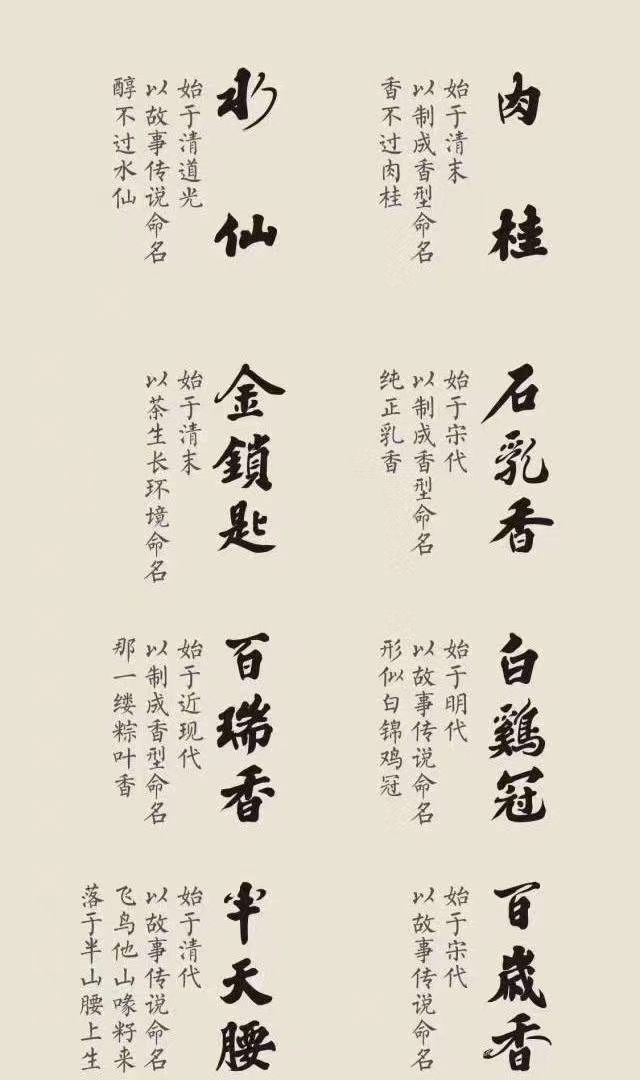 肉桂
始于清末
以制成香型命名
香不过肉桂
水仙
始于清道光
以故事传说命名
醇不过水仙
石乳香
始于宋代
以制成香型命名
纯正乳香
金鎖匙
始于清末
以茶生长环境命名
白鷄冠
始于明代
以故事传说命名
形似白锦鸡冠
百瑞香
始于近现代
以制成香型命名
那一缕粽叶香
百歲香
始于宋代
以故事传说命名
半天腰
始于清代
以故事传说命名
飞鸟他山喙籽来
落于半山腰上生